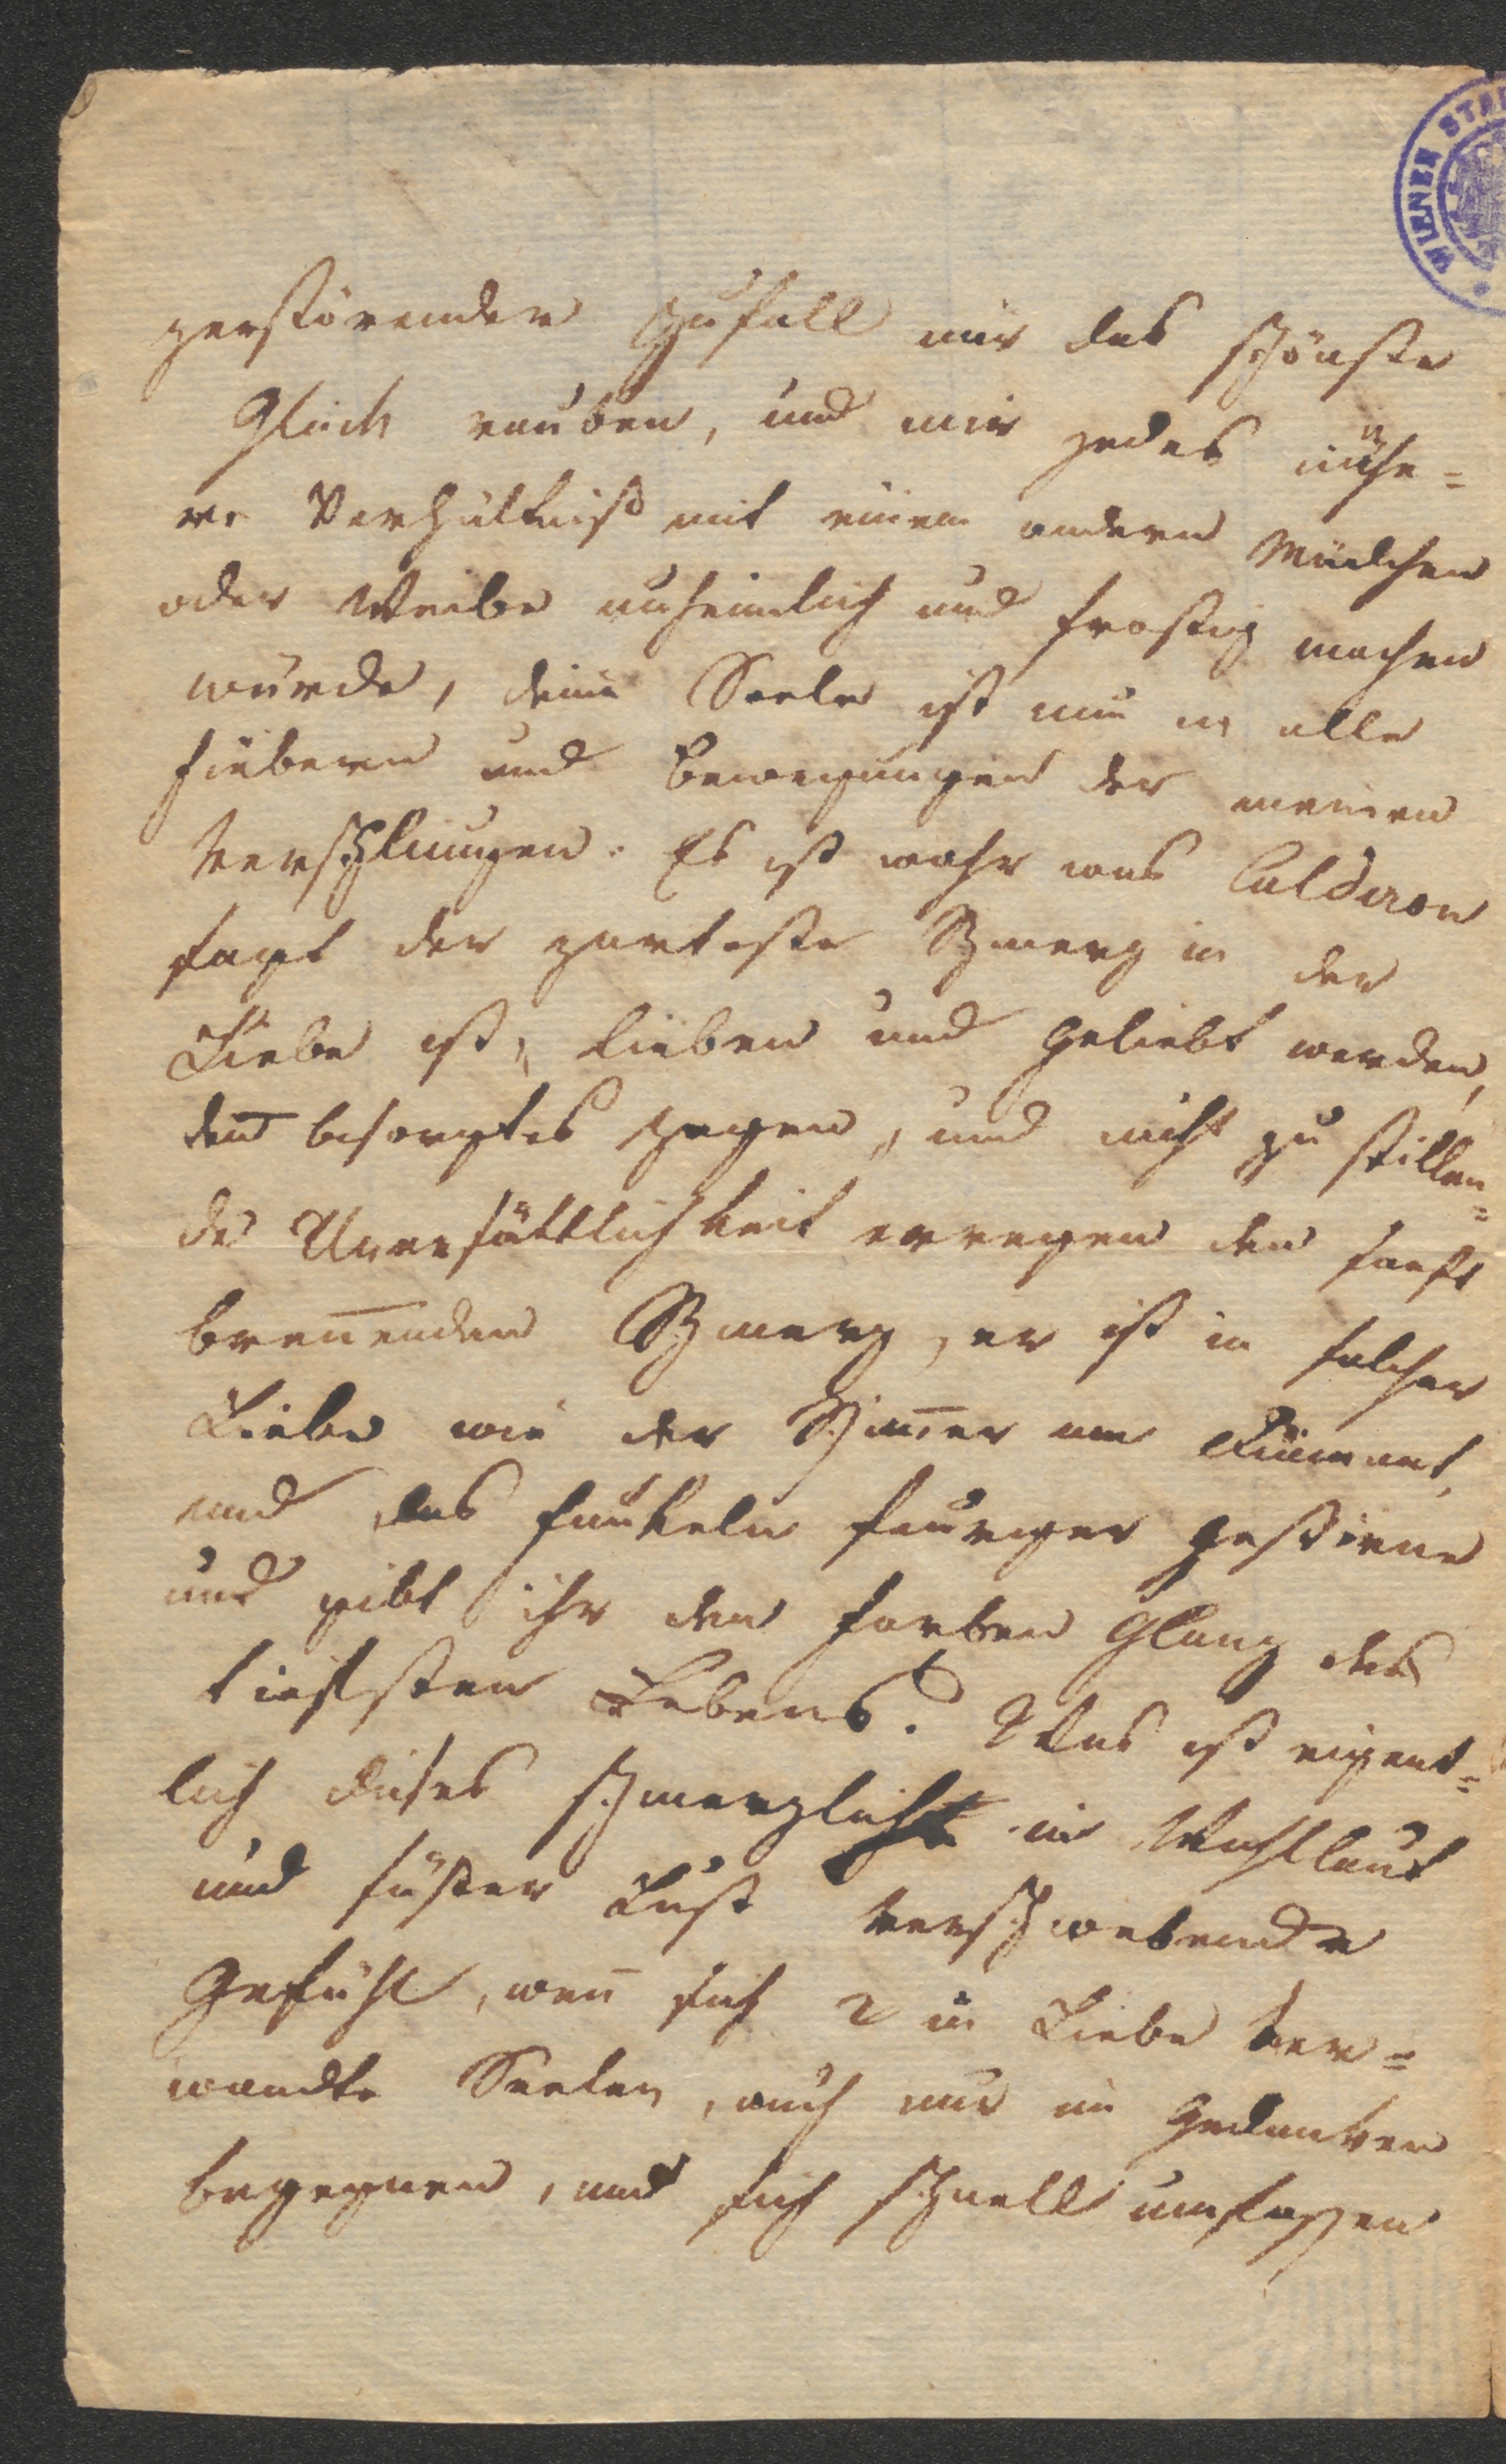 WIENER STA
zerstörender Zufall mir das schönste
Glück rauben, und mir jedes nähe=
re Verhältniß mit einem andern Mädchen
oder Weibe unheimlich und frostig machen
würde, deine Seele ist nun in alle
Fiebern und Bewegungen der meinen
verschlungen. Es ist wahr was Calderon
sagt der zarteste Schmerz in der
Liebe ist, lieben und geliebt werden,
deñ besorgtes zagen, und nicht zu stillen=
de Unersättlichkeit erregen den sanft
breñenden Schmerz, er ist in solcher
Liebe wie der Schim̄er am Diamant,
und das funkeln feuriger Gestirne
und gibt ihr den Farben Glanz des
tiefsten Lebens. Was ist eigent=
lich dieses schmerzlich in Wohllaut
und süßer Lust verschwebende
Gefühl, weñ sich 2 in Liebe ver=
wandte Seelen, auch nur im Gedanken
begegnen, und sich schnell umfassen